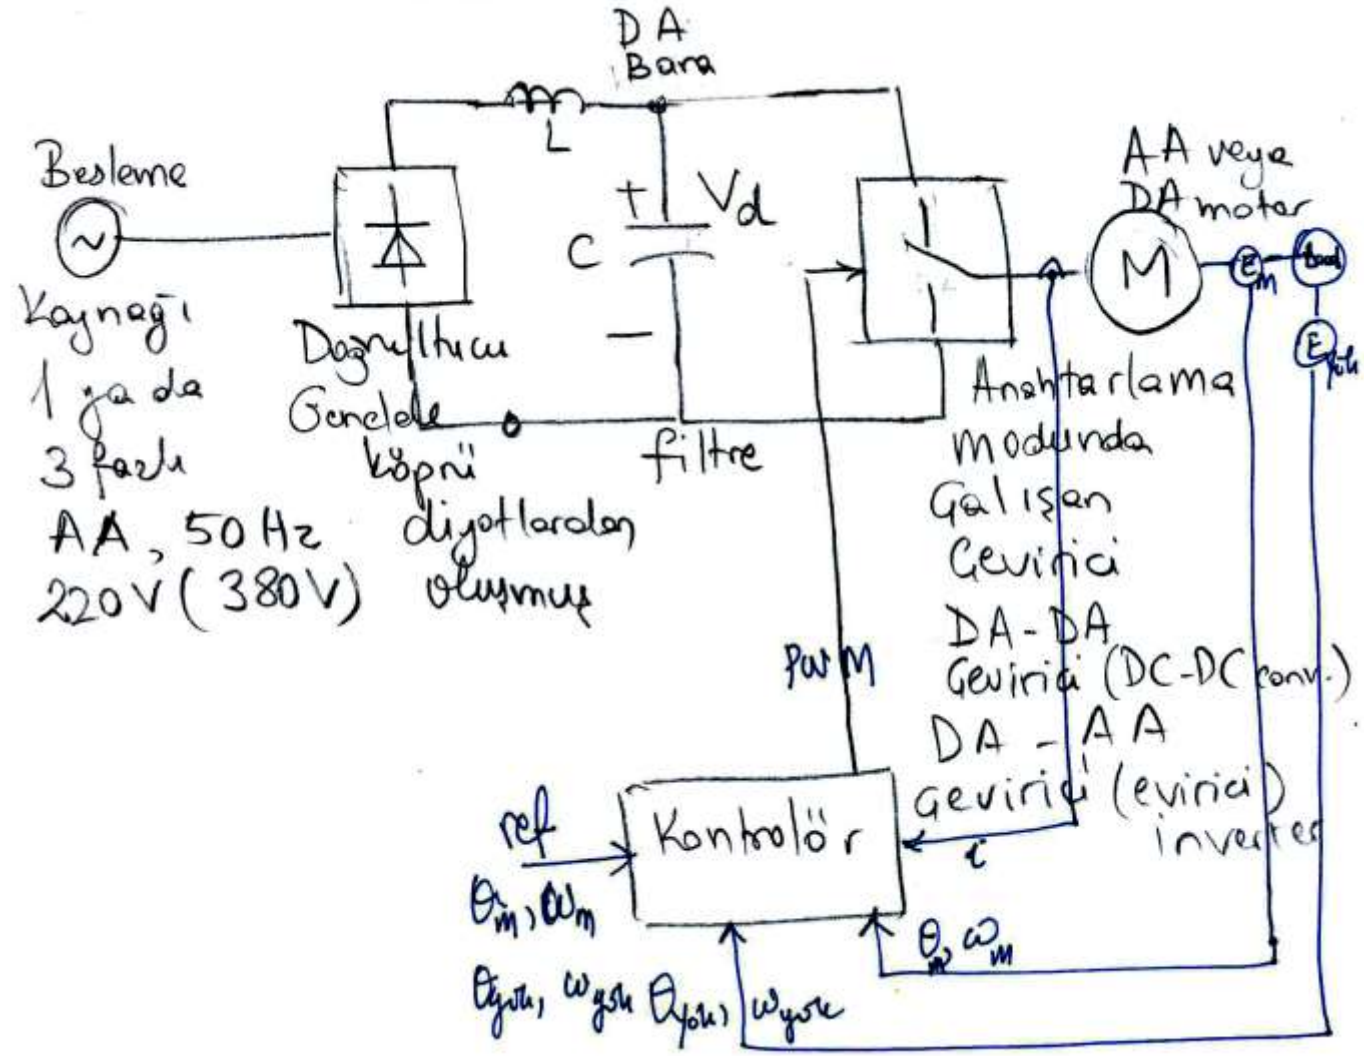 DA
Bara
L
Besleme
~
Kaynağı
1 ya da
3 fazlı
AA, 50 Hz
220V (380V)
Doğrultucu
Genelde
köprü
diyotlardan
oluşmuş
+
Vd
C
−
filtre
AA veya
DA motor
M
Em
Load
Eyük
Anahtarlama
modunda
Çalışan
Çevirici
DA-DA
Çevirici (DC-DC conv.)
DA - AA
Çevirici (evirici)
inverter
PWM
Kontrolör
ref
θm, ωm
θyük, ωyük
i
θm, ωm
θyük, ωyük